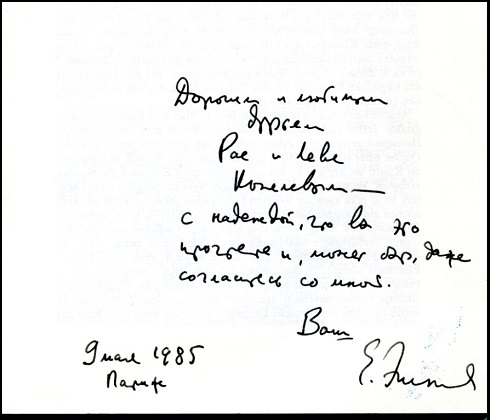 Дорогим и любимым
друзьям
Рае и Леве
Копелевым —
с надеждой, что вы это
прочтете и, может быть, даже
согласитесь со мной.
Ваш
Е. Эткинд
9 мая 1985
Париж